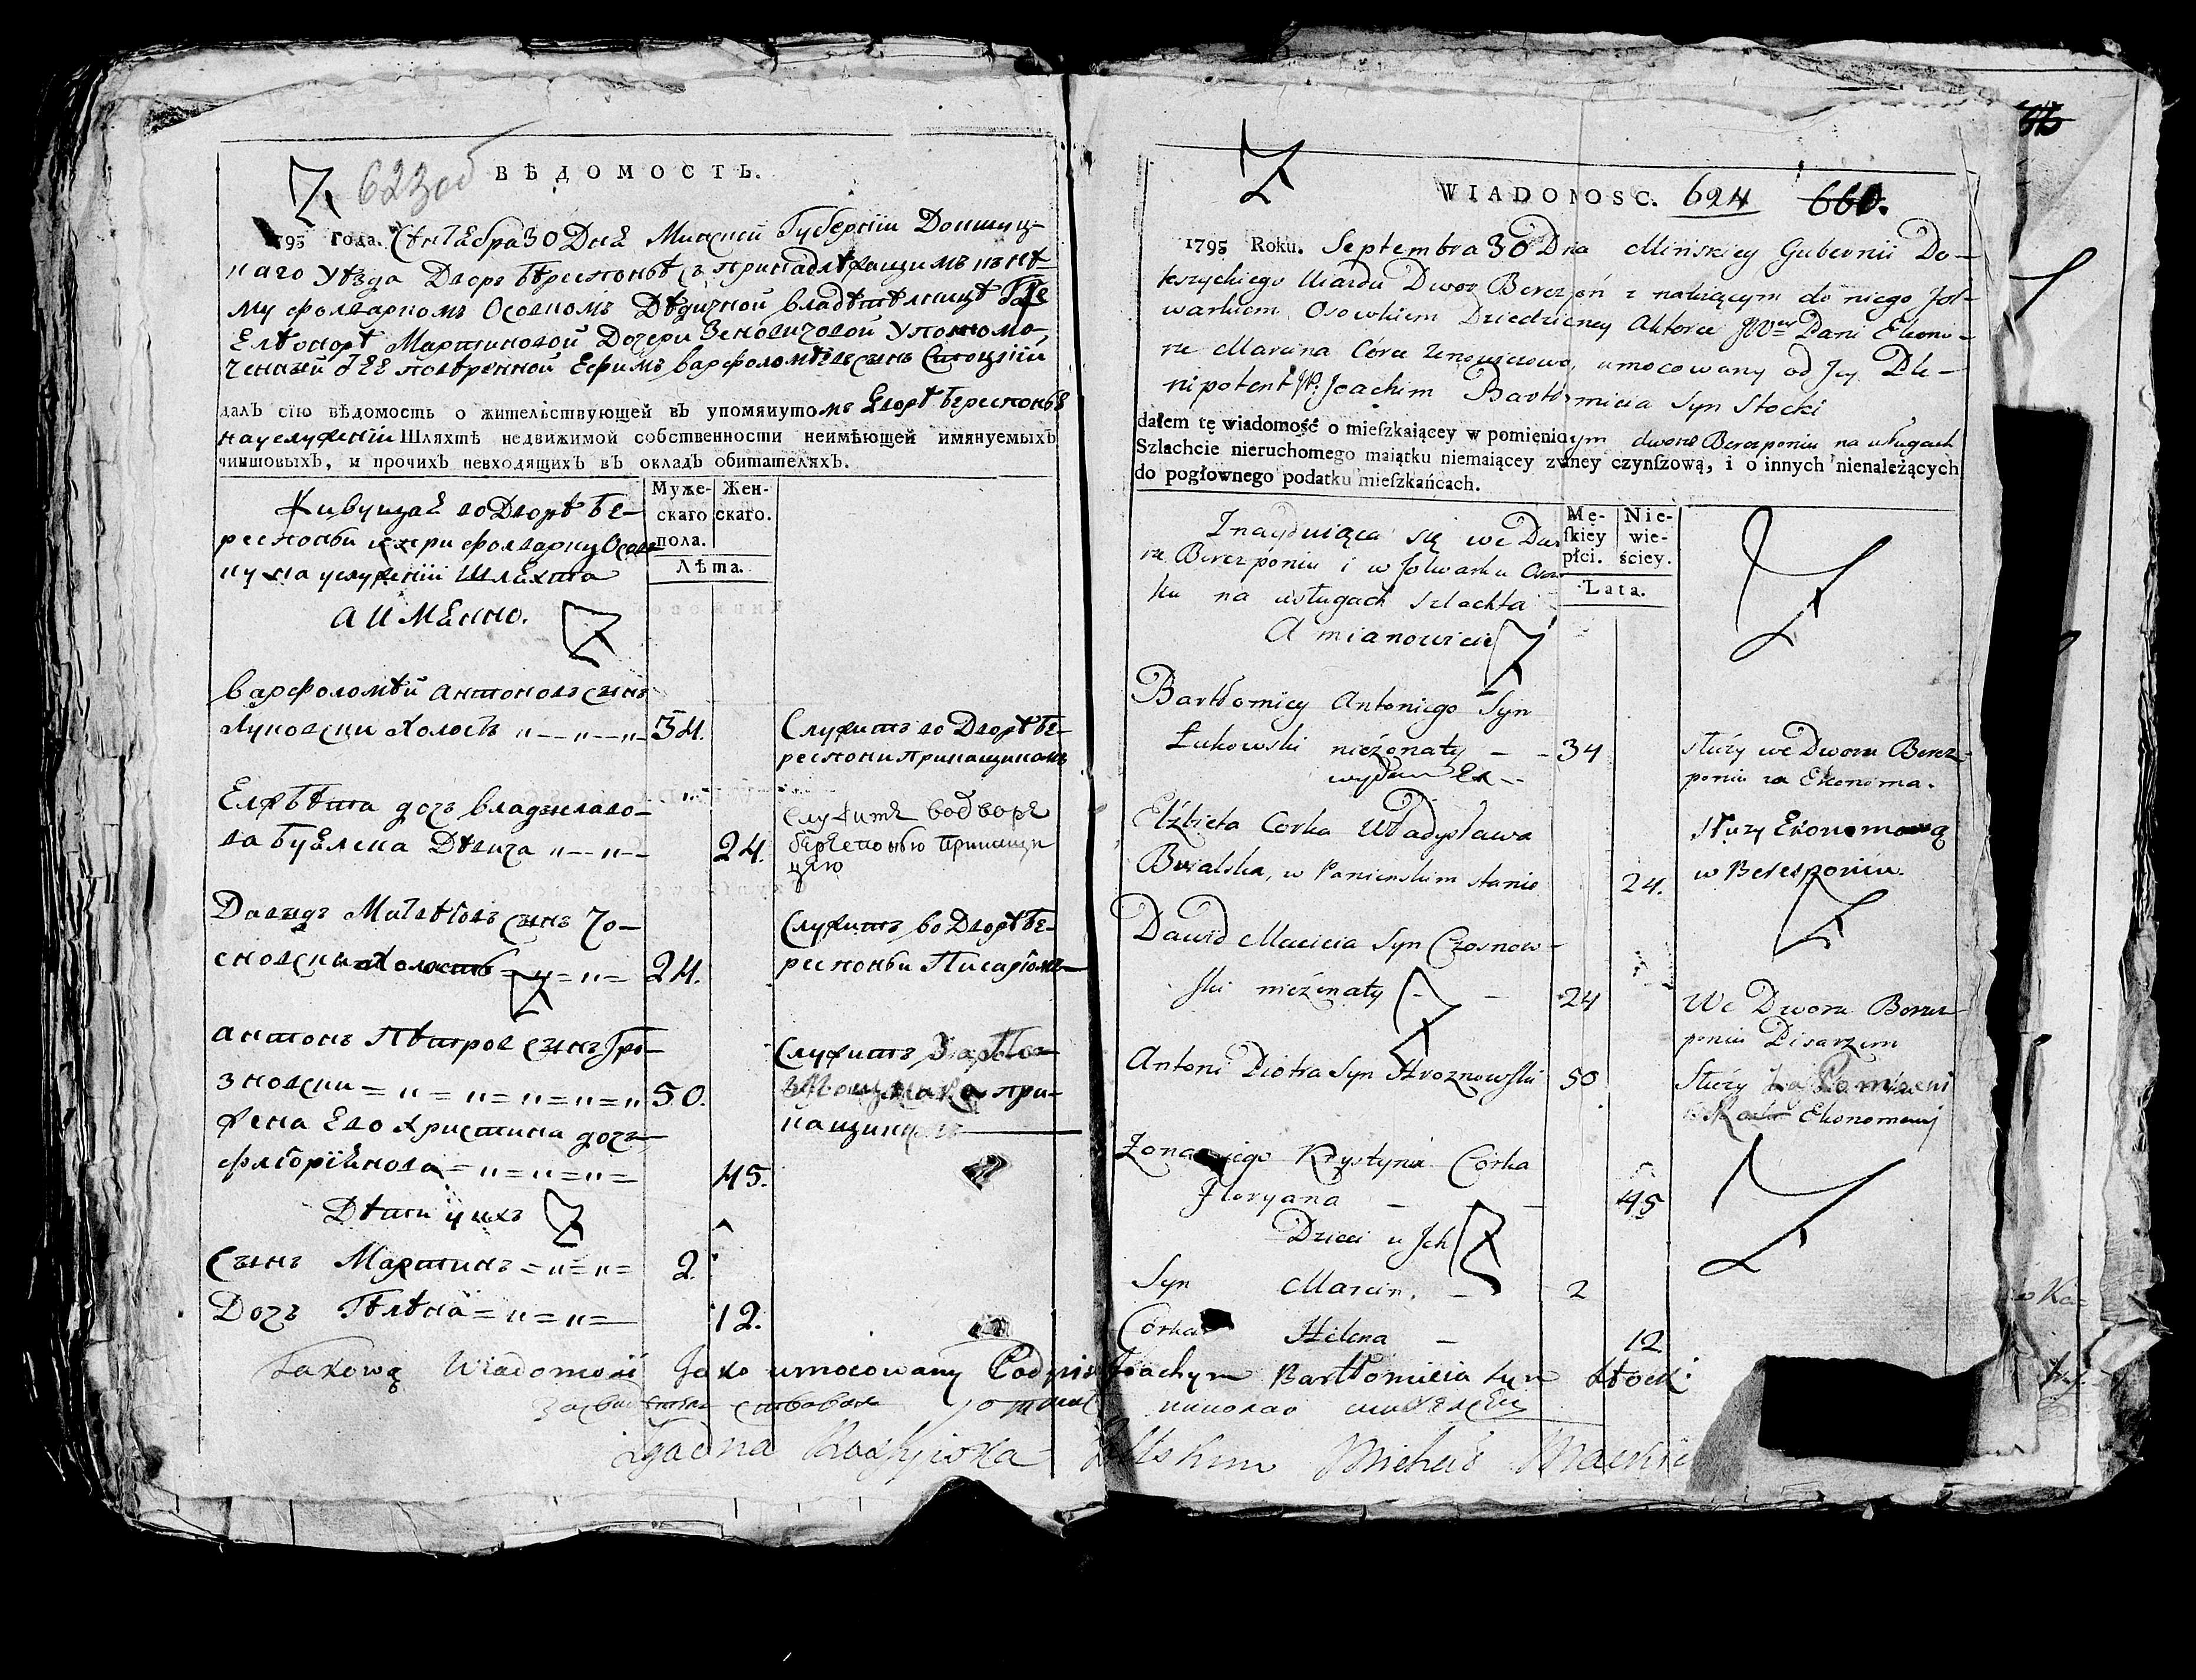 623об ВѢДОМОСТЬ.
1795 года. Сентебра 30 Дна Минской Губерніи Докшиц-
каго уѣзда Дворъ Береспонье съ принадлежащимъ къ не-
му фолваркомъ Осовкомъ Дѣдичной владѣтелницѣ
Елеонорѣ Мартиновой Дочери Зеновичовой уполномо-
ченный от ее повѣренной Ефимъ Варфоломеевъ сынъ Стоцкій
далъ сію вѣдомость о жительствующей въ упомянутомъ дворѣ Береспоньѣ
на услуженіи Шляхтѣ недвижимой собственности неимѣющей имянуемыхъ
чиншовыхъ, и прочихъ невходящихъ въ окладъ обитателяхъ.
Живущая во Дворѣ Бе-
респоньи и при фолварку Осов-
ку на услуженіи Шляхта
а имянно.
Мужескаго пола.
Женскаго.
Лѣта.
Варфоломѣй Антоновъ сынъ
Луковски холостъ 34.
Служитъ во Дворѣ Бе-
респони Прикащикомъ
Елжбѣта дочь Владыславо-
ва Буялска Дѣвица 24.
служитъ во дворе
Давыдъ Матѣевъ сынъ Чо-
сновски холостъ 24.
Служитъ во Дворѣ Бе-
респоньи Писаромъ
Антонъ Петровъ сынъ Гро-
зновски 50.
Служитъ
при-
кащиком
жена Ево Христина дочь
Флорiянова 45.
Дѣти у ихъ
Сынъ Мартинъ 2.
Дочь Гелена 12.
WIADOMOSC. 624 660.
1795 Roku. Septembra 30 Dnia Minskiey Gubernii Do-
kszyckiego Uiazdu Dwor Berezpoń z należącym do niego fol-
warkiem Osowkiem Dziedziczney Aktorce Pani Eleono-
rze Marcina Córce Zenowiczowo, umocowany od Jey Ple-
nipotent Joachim Bartłomieia Syn Stocki
dałem tę wiadomość o mieſzkaiącey w pomięnionym dworze Berezponiu na usługach
Szlachcie nieruchomego maiątku niemaiącey zwaney czynſzową, i o innych nienależących
do pogłownego podatku mieſzkańcach.
Znayduiąca się we Dwo-
rze Berezponiu i w folwarku Osow-
ku na usługach szlachta
A mianowicie
Męſkiey płci.
Niewieściey.
Lata.
Bartłomiey Antoniego Syn
Łukowski nieżonaty 34
służy we Dworze Berez-
poniu za Ekonoma.
Elżbieta Corka Władysława
Buialska, w Panienskim stanie 24.
Służy Ekonomową
w Beresponiu.
Dawid Macieia Syn Czosnow-
ſki nieżenaty 24
We Dworze Berez-
poniu Pisarzem
Antoni Piotra Syn Hroznowſki 50
Służy za
Ekonomemj
Zona iego Krystyna Córka
Floryana 45
Dzieci u Jch
Syn Marcin. 2
Córka Helena 12
Takową Wiadomość Jako umocowany Podpis Joachym Bartłomieia syn Stocki